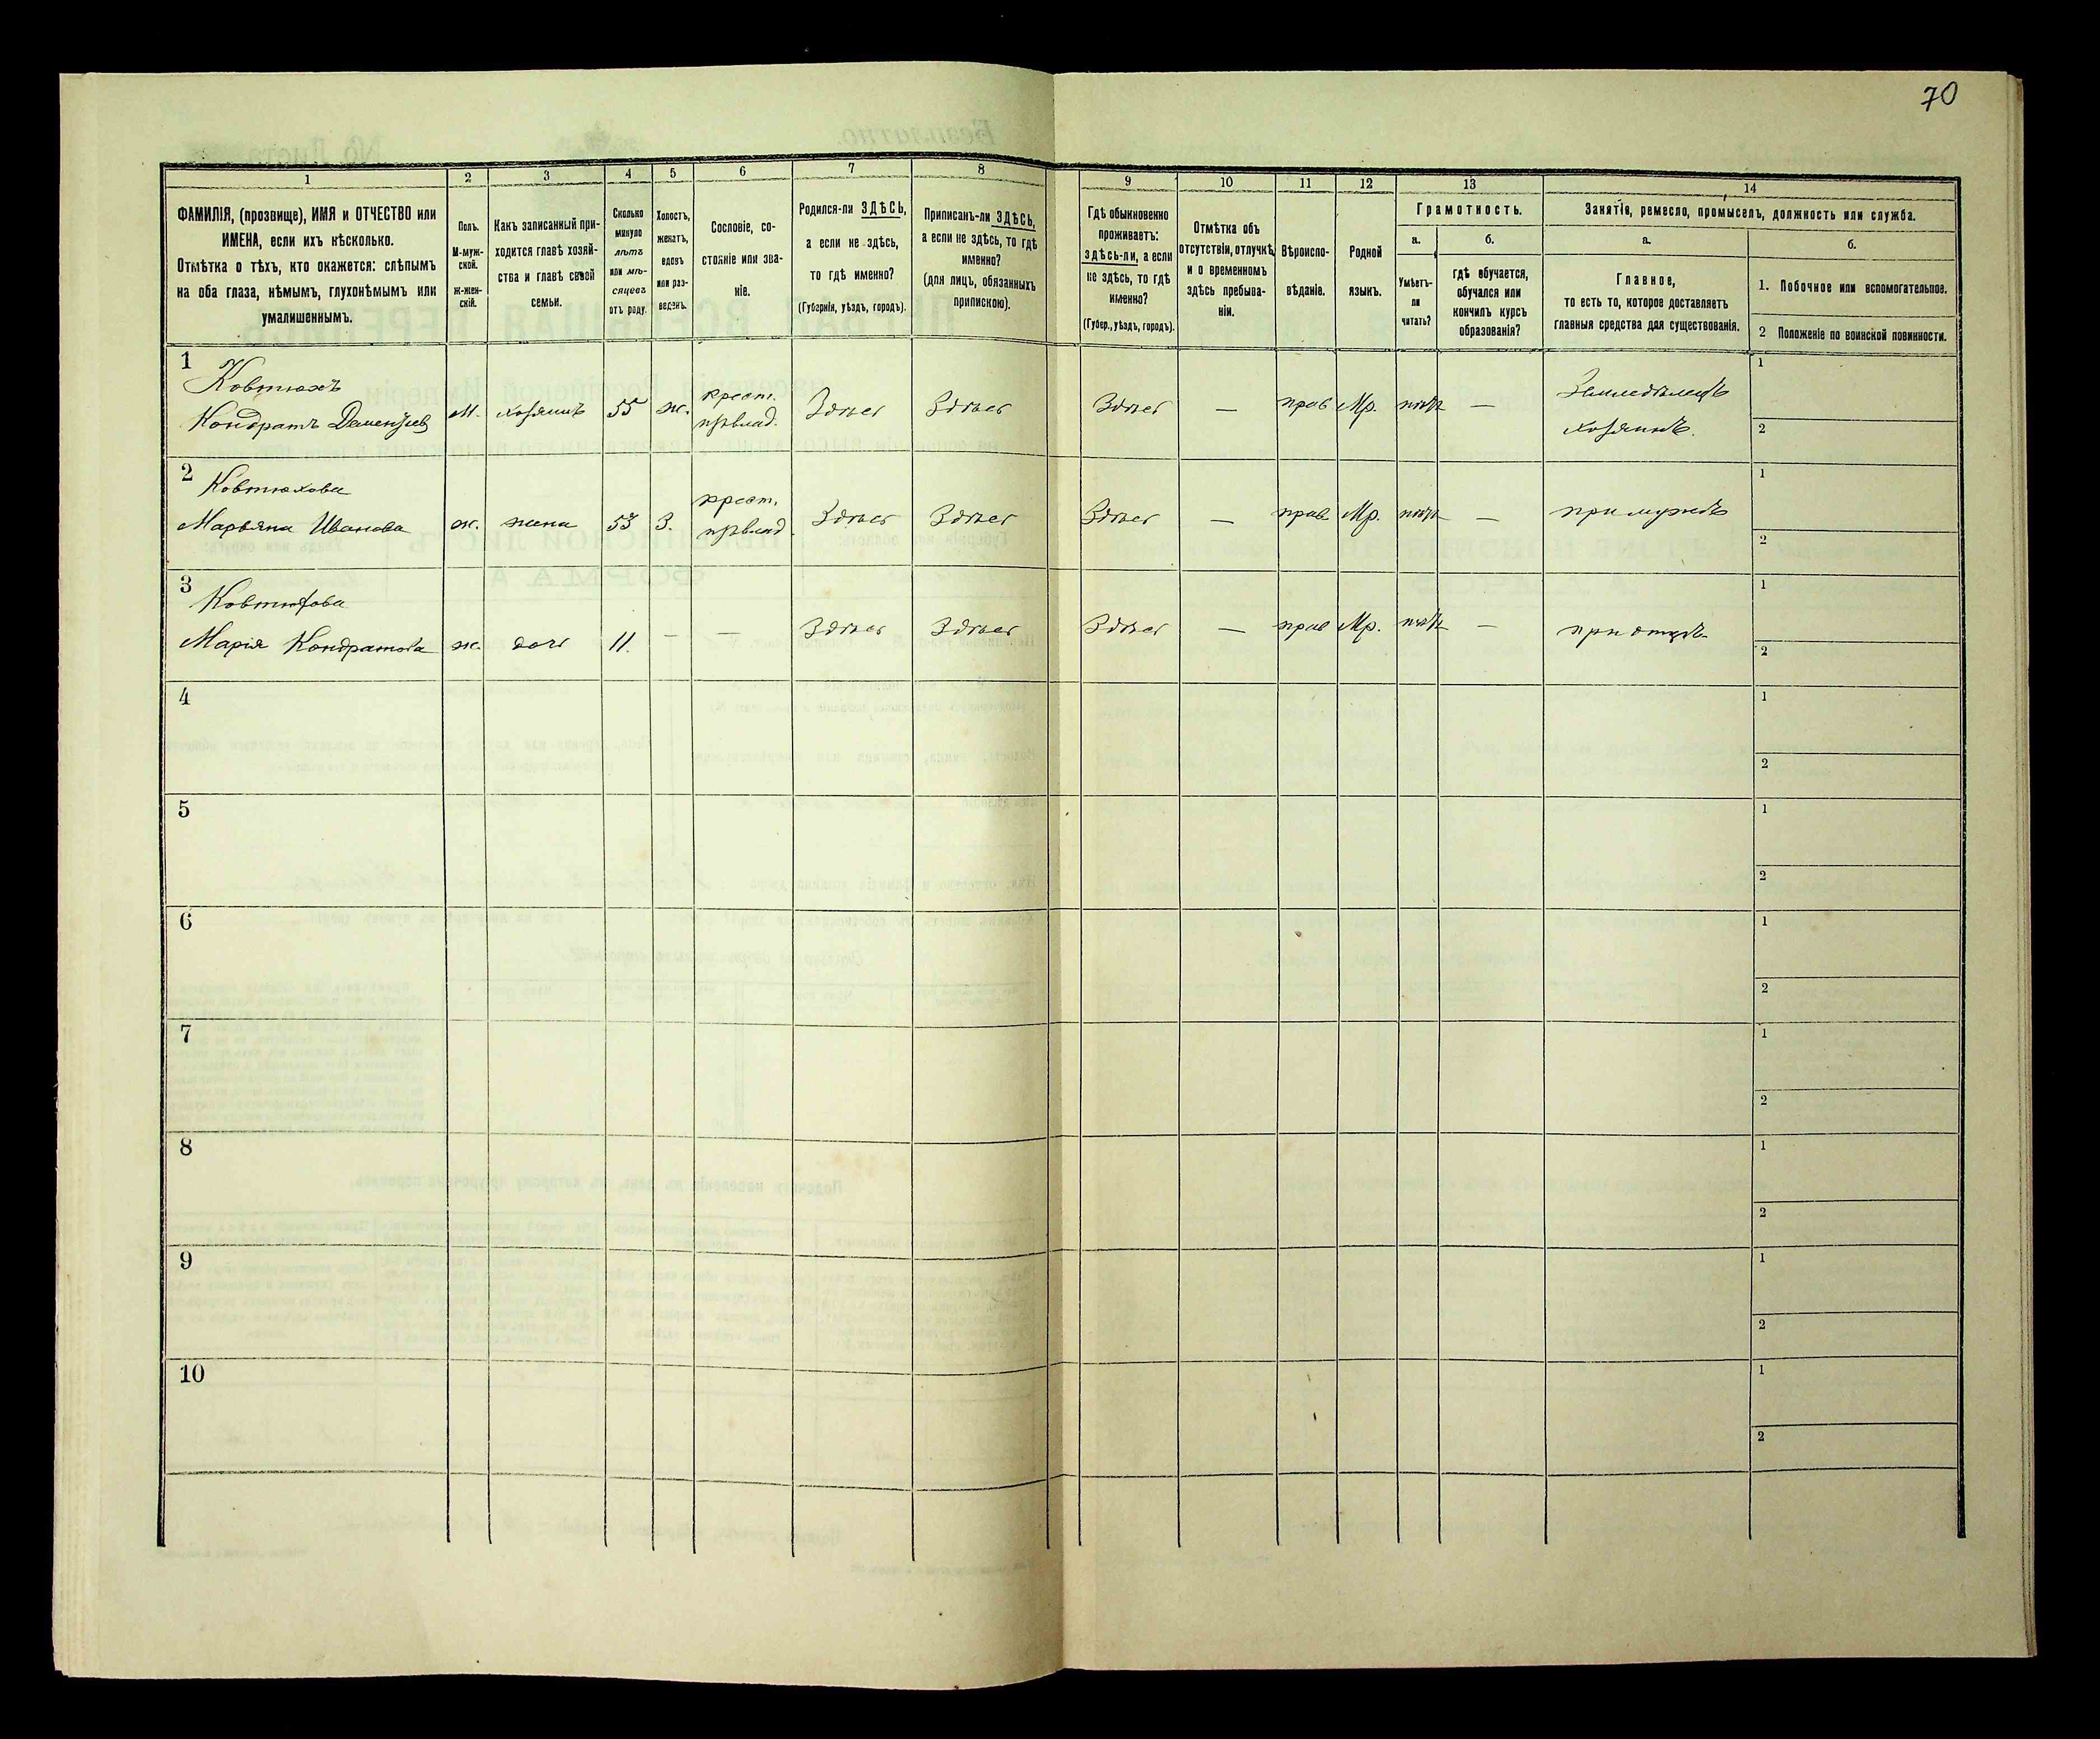 70
1
2
3
4
5
6
7
8
9
10
11
12
13
14
ФАМИЛІЯ, (прозвище), ИМЯ и ОТЧЕСТВО или
ИМЕНА, если ихъ нѣсколько.
Отмѣтка о тѣхъ, кто окажется: слѣпымъ
на оба глаза, нѣмымъ, глухонѣмымъ или
умалишеннымъ.
Полъ.
М-муж-
ской.
ж-жен-
скій.
Какъ записанный при-
ходится главѣ хозяй-
ства и главѣ своей
семьи.
Сколько
минуло
лѣтъ
или мѣ-
сяцевъ
отъ роду.
Холостъ,
женатъ,
вдовъ
или раз-
веденъ.
Сословіе, со-
стояніе или зва-
ніе.
Родился-ли ЗДѢСЬ,
а если не здѣсь,
то гдѣ именно?
(Губернія, уѣздъ, городъ).
Приписанъ-ли ЗДѢСЬ,
а если не здѣсь, то гдѣ
именно?
(для лицъ, обязанныхъ
припискою).
Гдѣ обыкновенно
проживаетъ:
здѣсь-ли, а если
не здѣсь, то гдѣ
именно?
(Губер., уѣздъ, городъ).
Отмѣтка объ
отсутствіи, отлучкѣ
и о временномъ
здѣсь пребыва-
ніи.
Вѣроиспо-
вѣданіе.
Родной
языкъ.
Грамотность.
а.
б.
Умѣетъ-
ли
читать?
гдѣ обучается,
обучался или
кончилъ курсъ
образованія?
Занятіе, ремесло, промыселъ, должность или служба.
а.
б.
Главное,
то есть то, которое доставляетъ
главныя средства для существованія.
1. Побочное или вспомогательное.
2 Положеніе по воинской повинности.
1
Ковтюхъ
Кондратъ Дементьев
м.
хозяинъ
55
ж.
крест.
пр. влад.
Здѣсь
Здѣсь
Здѣсь
—
прав
Мр.
нѣтъ
—
Земледѣлецъ
хозяинъ.
1
2
2
Ковтюхова
Марьяна Иванова
ж.
жена
53
З.
крест.
пр. влад.
Здѣсь
Здѣсь
Здѣсь
—
прав
Мр.
нѣтъ
—
при мужѣ
1
2
3
Ковтюхова
Марія Кондратова
ж.
дочь
11.
—
—
Здѣсь
Здѣсь
Здѣсь
—
прав
Мр.
нѣтъ
—
при отцѣ
1
2
4
1
2
5
1
2
6
1
2
7
1
2
8
1
2
9
1
2
10
1
2